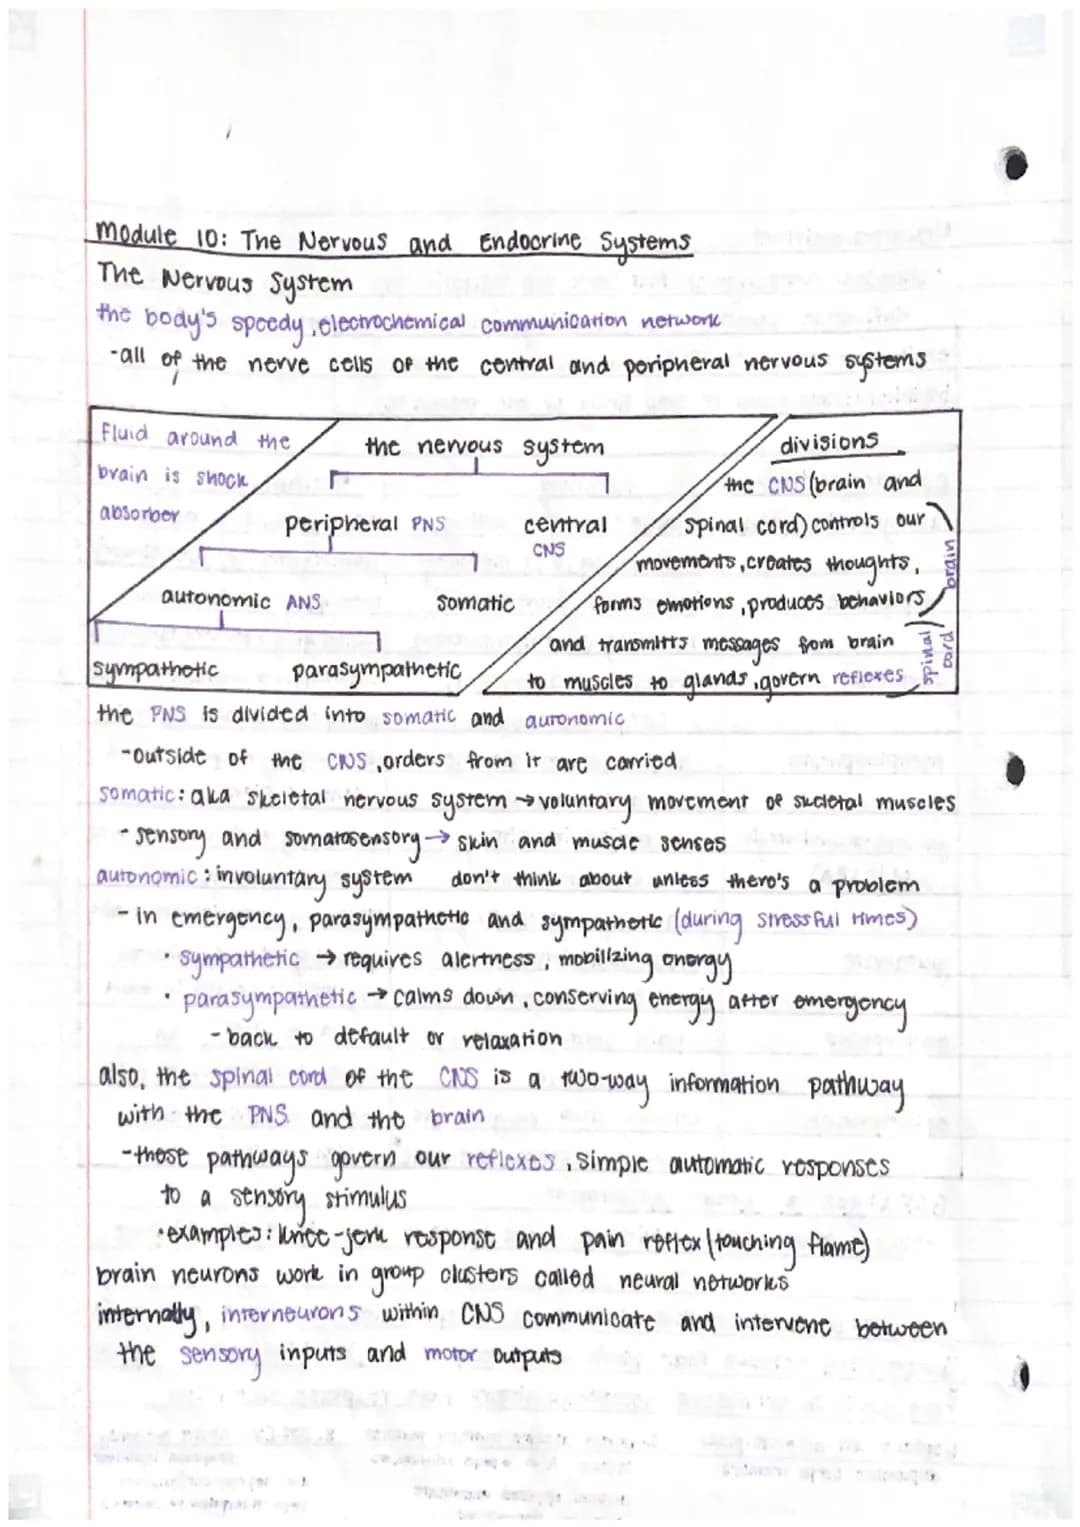 Module 10: The Nervous and Endocrine Systems
The Nervous System
the body's speedy, electrochemical communication network
-all of the nerve cells of the central and peripheral nervous systems
Fluid around the
brain is shock
absorber
the nervous system
peripheral PNS
central
CNS
autonomic ANS
somatic
sympathetic
parasympathetic
divisions
the CNS (brain and
spinal cord) controls our
movements, creates thoughts,
forms emotions, produces behaviors
and transmitts messages from brain
to muscles to glands, govern reflexes
brain
spinal
cord
the PNS is divided into somatic and autonomic
-outside of the CNS, orders from it are carried
somatic: aka skeletal nervous system → voluntary movement of skeletal muscles
- sensory and somatosensory → skin and muscle senses
autonomic: involuntary system don't think about unless there's a problem
- in emergency, parasympathetic and sympathetic (during stressful times)
• sympathetic → requires alertness, mobilizing energy
• parasympathetic → calms down, conserving energy after emergency
- back to default or relaxation
also, the spinal cord of the CNS is a two-way information pathway
with the PNS and the brain
-these pathways govern our reflexes, simple automatic responses
to a sensory stimulus
•examples: knee-jerk response and pain reflex (touching flame)
brain neurons work in group clusters called neural networks
internally, interneurons within CNS communicate and intervene between
the sensory inputs and motor outputs